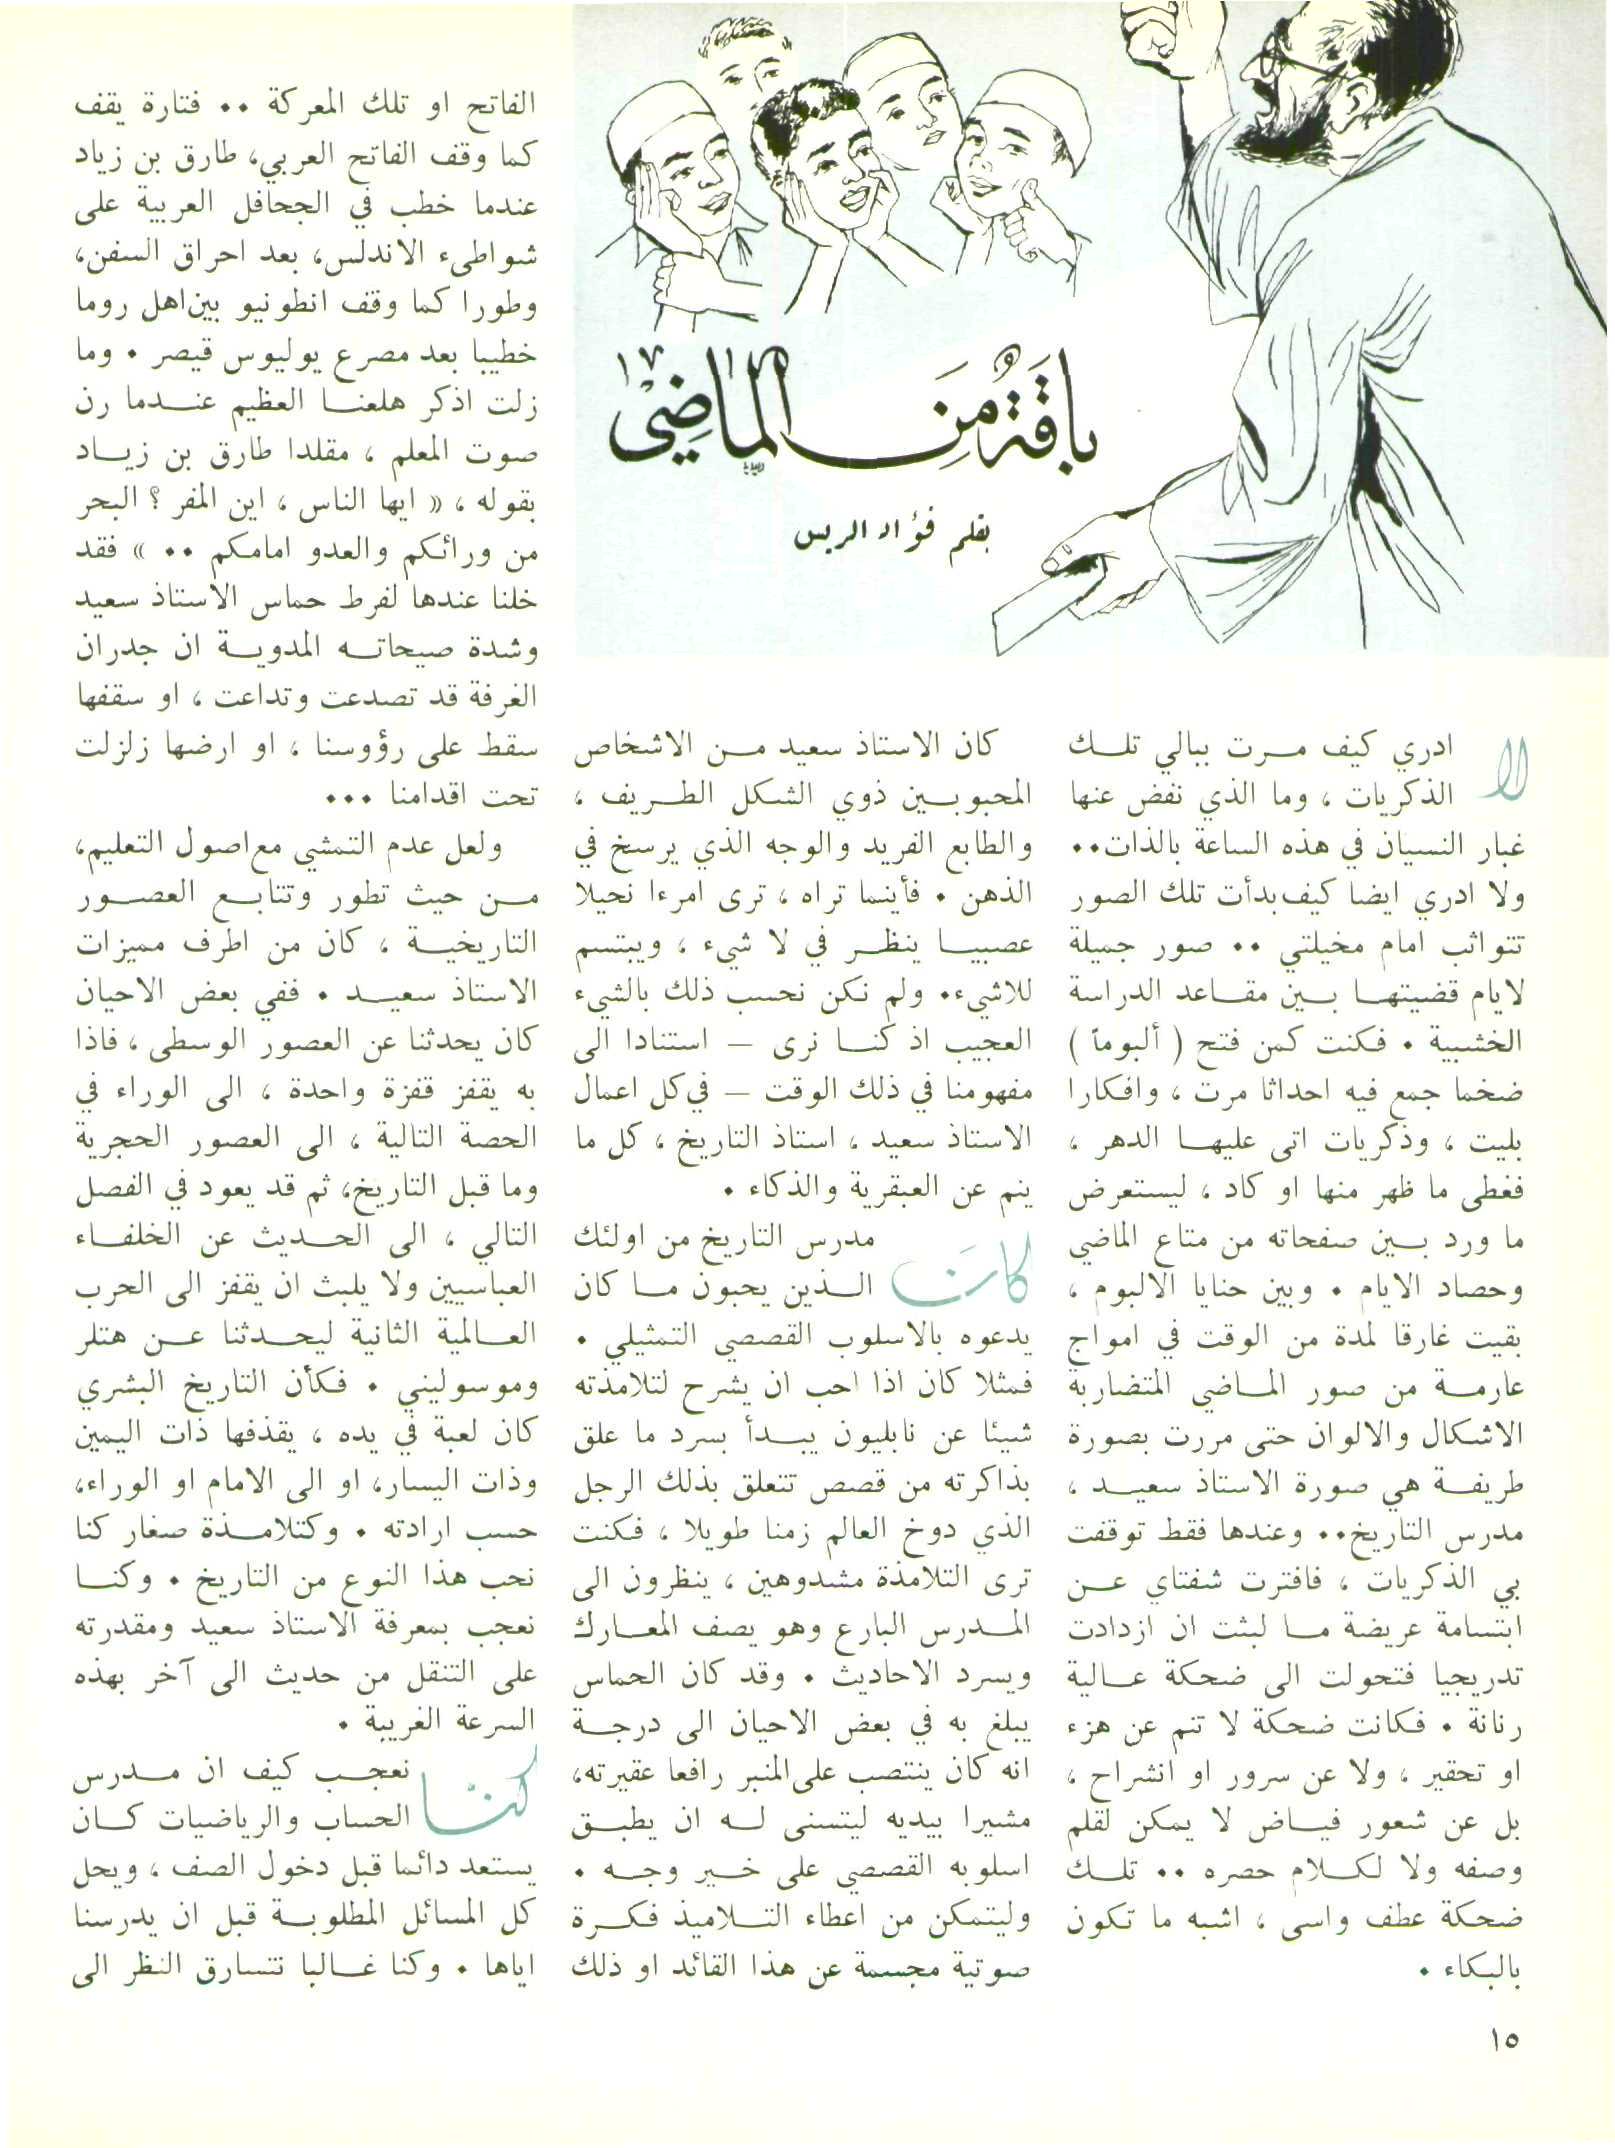 باقة من الماضي
بقلم فؤاد الريس
لا ادري كيف مرت ببالي تلك
الذكريات ، وما الذي نفض عنها
غبار النسيان في هذه الساعة بالذات٠٠
ولا ادري ايضا كيف بدأت تلك الصور
تتواثب امام مخيلتي ٠٠ صور جميلة
لايام قضيتها بين مقاعد الدراسة
الخشبية ٠ فكنت كمن فتح ( ألبوماً )
ضخما جمع فيه احداثا مرت ، وافكارا
بليت ، وذكريات اتى عليها الدهر ،
فغطى ما ظهر منها او كاد ، ليستعرض
ما ورد بين صفحاته من متاع الماضي
وحصاد الايام ٠ وبين حنايا الالبوم ،
بقيت غارقا لمدة من الوقت في امواج
عارمة من صور الماضي المتضاربة
الاشكال والالوان حتى مررت بصورة
طريفة هي صورة الاستاذ سعيد ،
مدرس التاريخ٠٠ وعندها فقط توقفت
بي الذكريات ، فافترت شفتاي عن
ابتسامة عريضة ما لبثت ان ازدادت
تدريجيا فتحولت الى ضحكة عالية
رنانة ٠ فكانت ضحكة لا تنم عن هزء
او تحقير ، ولا عن سرور او انشراح ،
بل عن شعور فياض لا يمكن لقلم
وصفه ولا لكلام حصره ٠٠ تلك
ضحكة عطف واسى ، اشبه ما تكون
بالبكاء ٠
كان الاستاذ سعيد من الاشخاص
المحبوبين ذوي الشكل الطريف ،
والطابع الفريد والوجه الذي يرسخ في
الذهن ٠ فأينما تراه ، ترى امرءا نحيلا
عصبيا ينظر في لا شيء ، ويبتسم
للاشيء٠ ولم نكن نحسب ذلك بالشيء
العجيب اذ كنا نرى – استنادا الى
مفهومنا في ذلك الوقت – في كل اعمال
الاستاذ سعيد ، استاذ التاريخ ، كل ما
ينم عن العبقرية والذكاء ٠
كان مدرس التاريخ من اولئك
الذين يحبون ما كان
يدعوه بالاسلوب القصصي التمثيلي ٠
فمثلا كان اذا احب ان يشرح لتلامذته
شيئا عن نابليون يبدأ بسرد ما علق
بذاكرته من قصص تتعلق بذلك الرجل
الذي دوخ العالم زمنا طويلا ، فكنت
ترى التلامذة مشدوهين ، ينظرون الى
المدرس البارع وهو يصف المعارك
ويسرد الاحاديث ٠ وقد كان الحماس
يبلغ به في بعض الاحيان الى درجة
انه كان ينتصب على المنبر رافعا عقيرته،
مشيرا بيديه ليتسنى له ان يطبق
اسلوبه القصصي على خير وجه ٠
وليتمكن من اعطاء التلاميذ فكرة
صوتية مجسمة عن هذا القائد او ذلك
الفاتح او تلك المعركة ٠٠ فتارة يقف
كما وقف الفاتح العربي، طارق بن زياد
عندما خطب في الجحافل العربية على
شواطىء الاندلس، بعد احراق السفن،
وطورا كما وقف انطونيو بين اهل روما
خطيبا بعد مصرع يوليوس قيصر ٠ وما
زلت اذكر هلعنا العظيم عندما رن
صوت المعلم ، مقلدا طارق بن زياد
بقوله ، « ايها الناس ، اين المفر ؟ البحر
من ورائكم والعدو امامكم ٠٠ » فقد
خلنا عندها لفرط حماس الاستاذ سعيد
وشدة صيحاته المدوية ان جدران
الغرفة قد تصدعت وتداعت ، او سقفها
سقط على رؤوسنا ، او ارضها زلزلت
تحت اقدامنا ٠٠٠
ولعل عدم التمشي مع اصول التعليم،
من حيث تطور وتتابع العصور
التاريخية ، كان من اطرف مميزات
الاستاذ سعيد ٠ ففي بعض الاحيان
كان يحدثنا عن العصور الوسطى ، فاذا
به يقفز قفزة واحدة ، الى الوراء في
الحصة التالية ، الى العصور الحجرية
وما قبل التاريخ، ثم قد يعود في الفصل
التالي ، الى الحديث عن الخلفاء
العباسيين ولا يلبث ان يقفز الى الحرب
العالمية الثانية ليحدثنا عن هتلر
وموسوليني ٠ فكأن التاريخ البشري
كان لعبة في يده ، يقذفها ذات اليمين
وذات اليسار، او الى الامام او الوراء،
حسب ارادته ٠ وكتلامذة صغار كنا
نحب هذا النوع من التاريخ ٠ وكنا
نعجب بمعرفة الاستاذ سعيد ومقدرته
على التنقل من حديث الى آخر بهذه
السرعة الغريبة ٠
كنا نعجب كيف ان مدرس
الحساب والرياضيات كان
يستعد دائما قبل دخول الصف ، ويحل
كل المسائل المطلوبة قبل ان يدرسنا
اياها ٠ وكنا غالبا نتسارق النظر الى
١٥